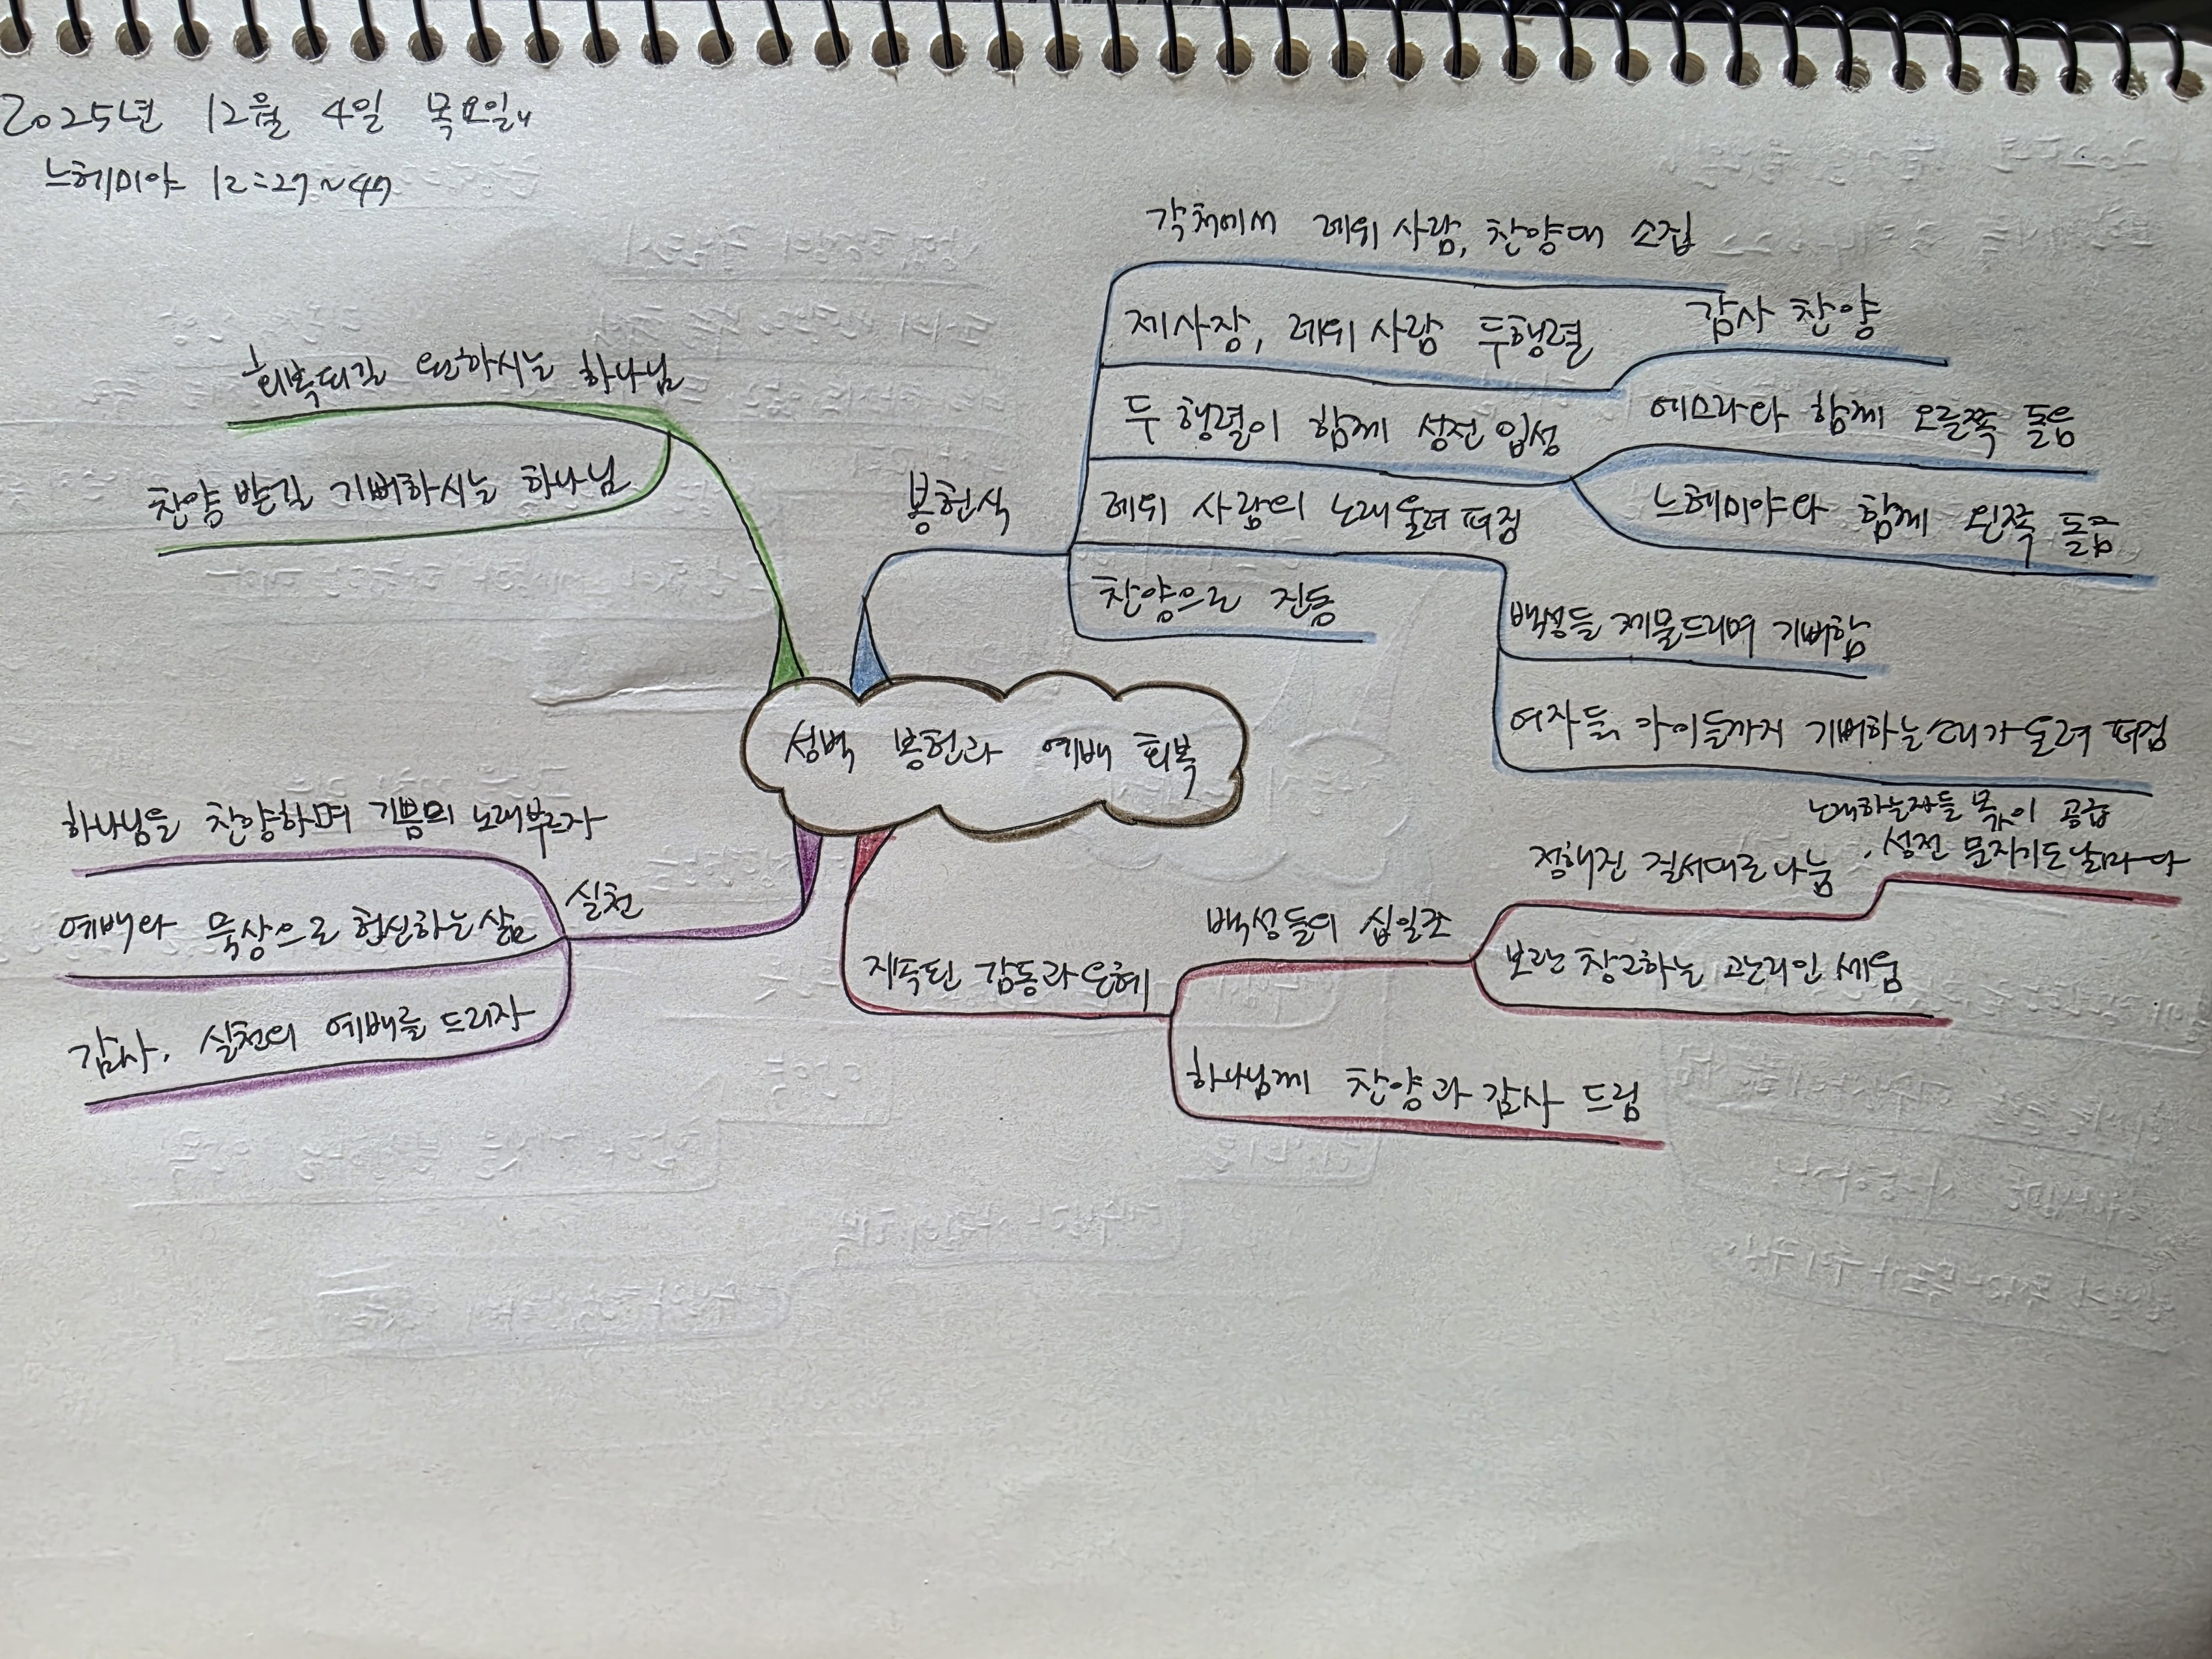 2025년 12월 4일 목요일
느헤미야 12:27~47
각처에서 레위 사람, 찬양대 소집
제사장, 레위 사람 두행렬
감사 찬양
두 행렬이 함께 성전 입성
에스라와 함께 오른쪽 돌음
느헤미야와 함께 왼쪽 돌음
봉헌식
레위 사람의 노래울려퍼짐
백성들 제물드리며 기뻐함
여자들, 아이들까지 기뻐하는소리가 울려 퍼짐
찬양으로 진동
회복되길 원하시는 하나님
찬양 받길 기뻐하시는 하나님
성벽 봉헌과 예배 회복
하나님을 찬양하며 기쁨의 노래부르자
실천
예배와 묵상으로 헌신하는 삶
감사, 실천의 예배를 드리자
지속된 감동과 은혜
백성들의 십일조
정해진 질서대로 나눔
노래하는자들 몫 공급
, 성전 문지기도 날마다
하는 관리인 세움
하나님께 찬양과 감사 드림